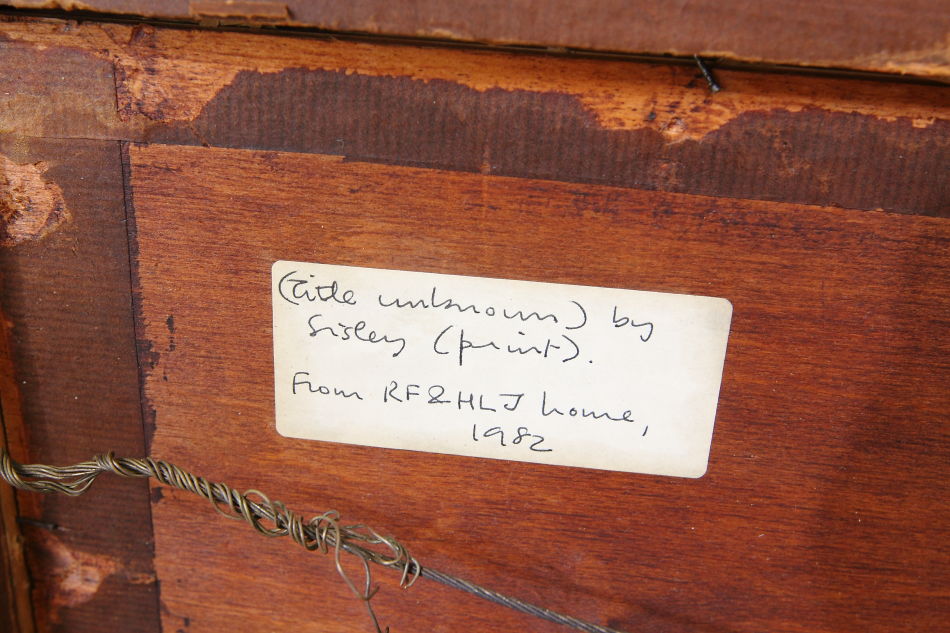 (title unknown) by
Sisley (print).
From RF&HLJ home,
1982